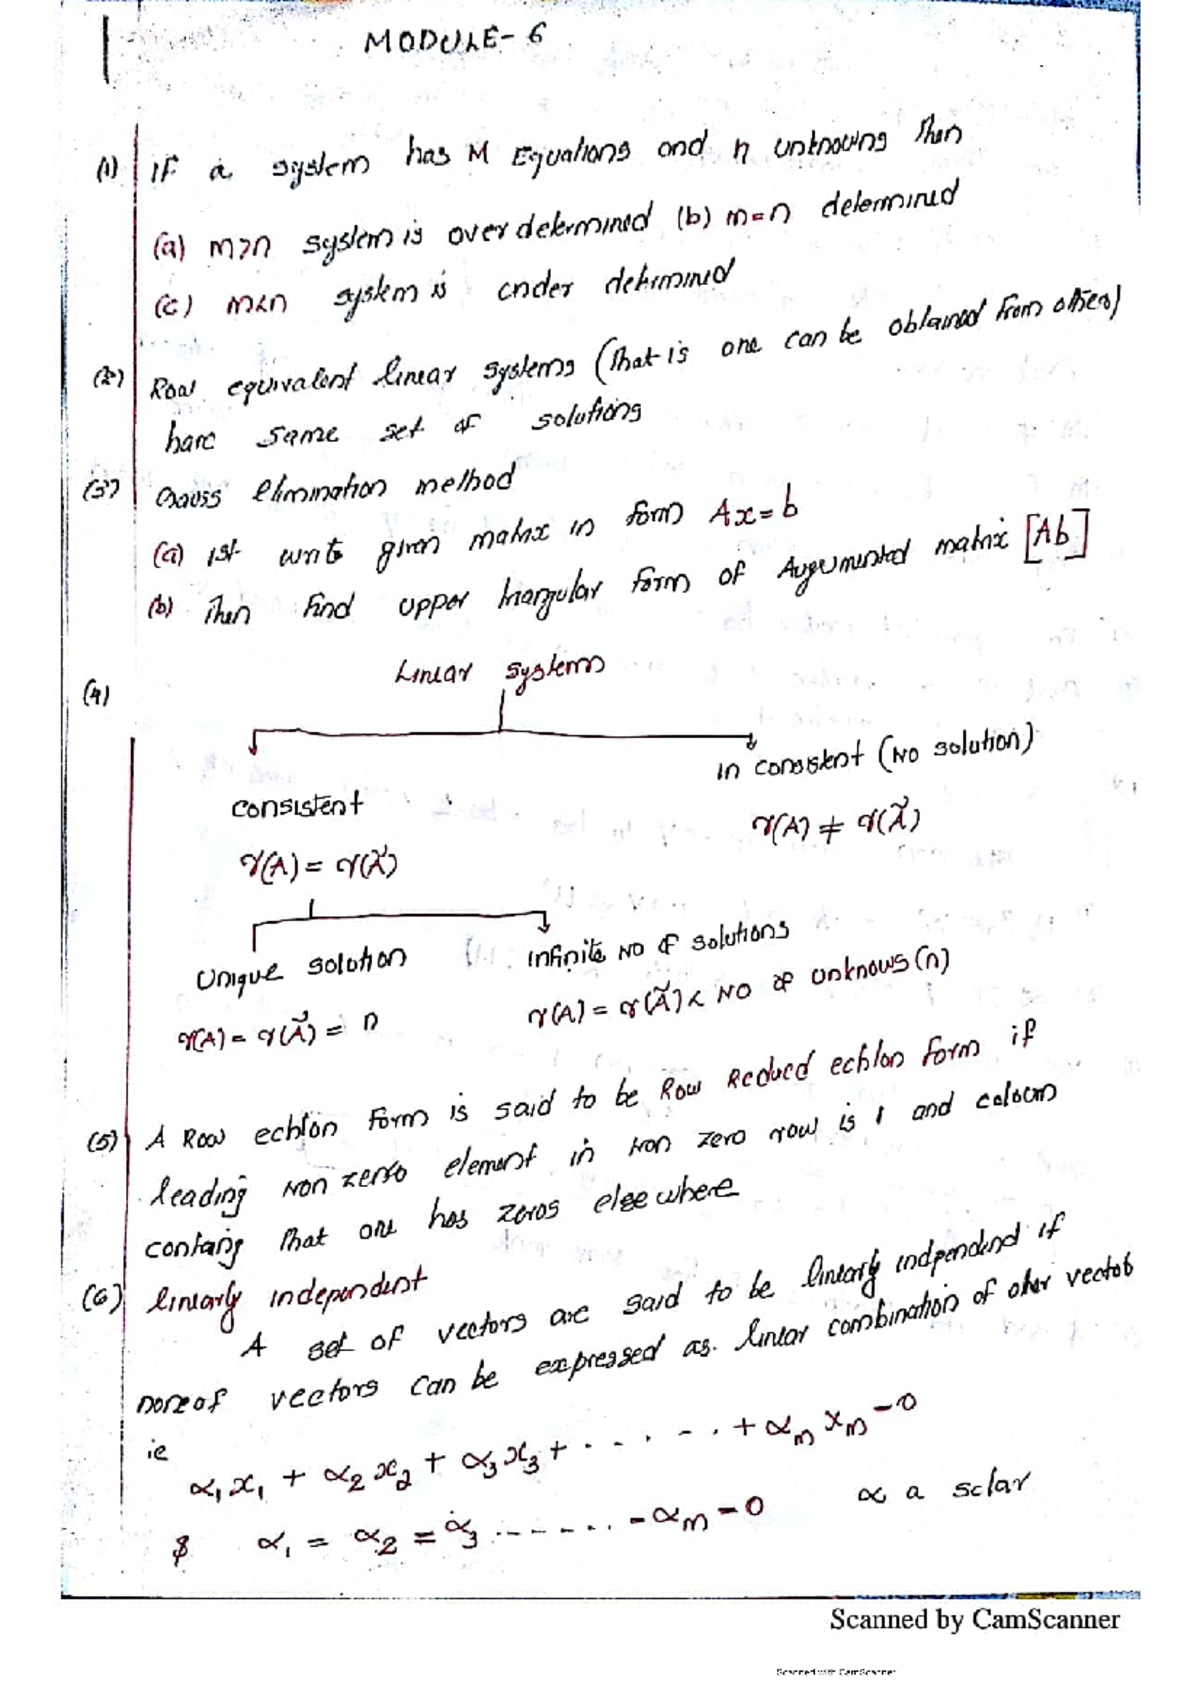 MODULE-6
(1) IF a system has M Equations and n unknowns Then
(a) m>n system is over determined (b) m=n determined
(c) m<n system is under determined
(2) Row equivalent linear systems (That is one can be obtained from others)
have same set of solutions
(3) Gauss elimination method
(a) 1st write given matrix in form Ax=b
(b) Then find upper triangular form of Augumented matrix [Ab]
(4) Linear systems
in consistent (No solution)
consistent
r(A) ≠ r(Ã)
r(A) = r(Ã)
Unique solution infinite NO of solutions
r(A) = r(Ã) = n r(A) = r(Ã) < NO of unknows(n)
(5) A Row echlon form is said to be Row Reduced echlon form if
leading Non zero element in Non zero row is 1 and coloum
containg that one has zeros else where
(6) linearly independent
A set of vectors are said to be linearly independend if
none of vectors can be expressed as linear combination of other vectors
ie
α₁x₁ + α₂x₂ + α₃x₃ + ....... + αₘxₘ = 0
$ α₁ = α₂ = α₃ ------.. = αₘ = 0 α a sclar
Scanned by CamScanner
Scanned with CamScanner